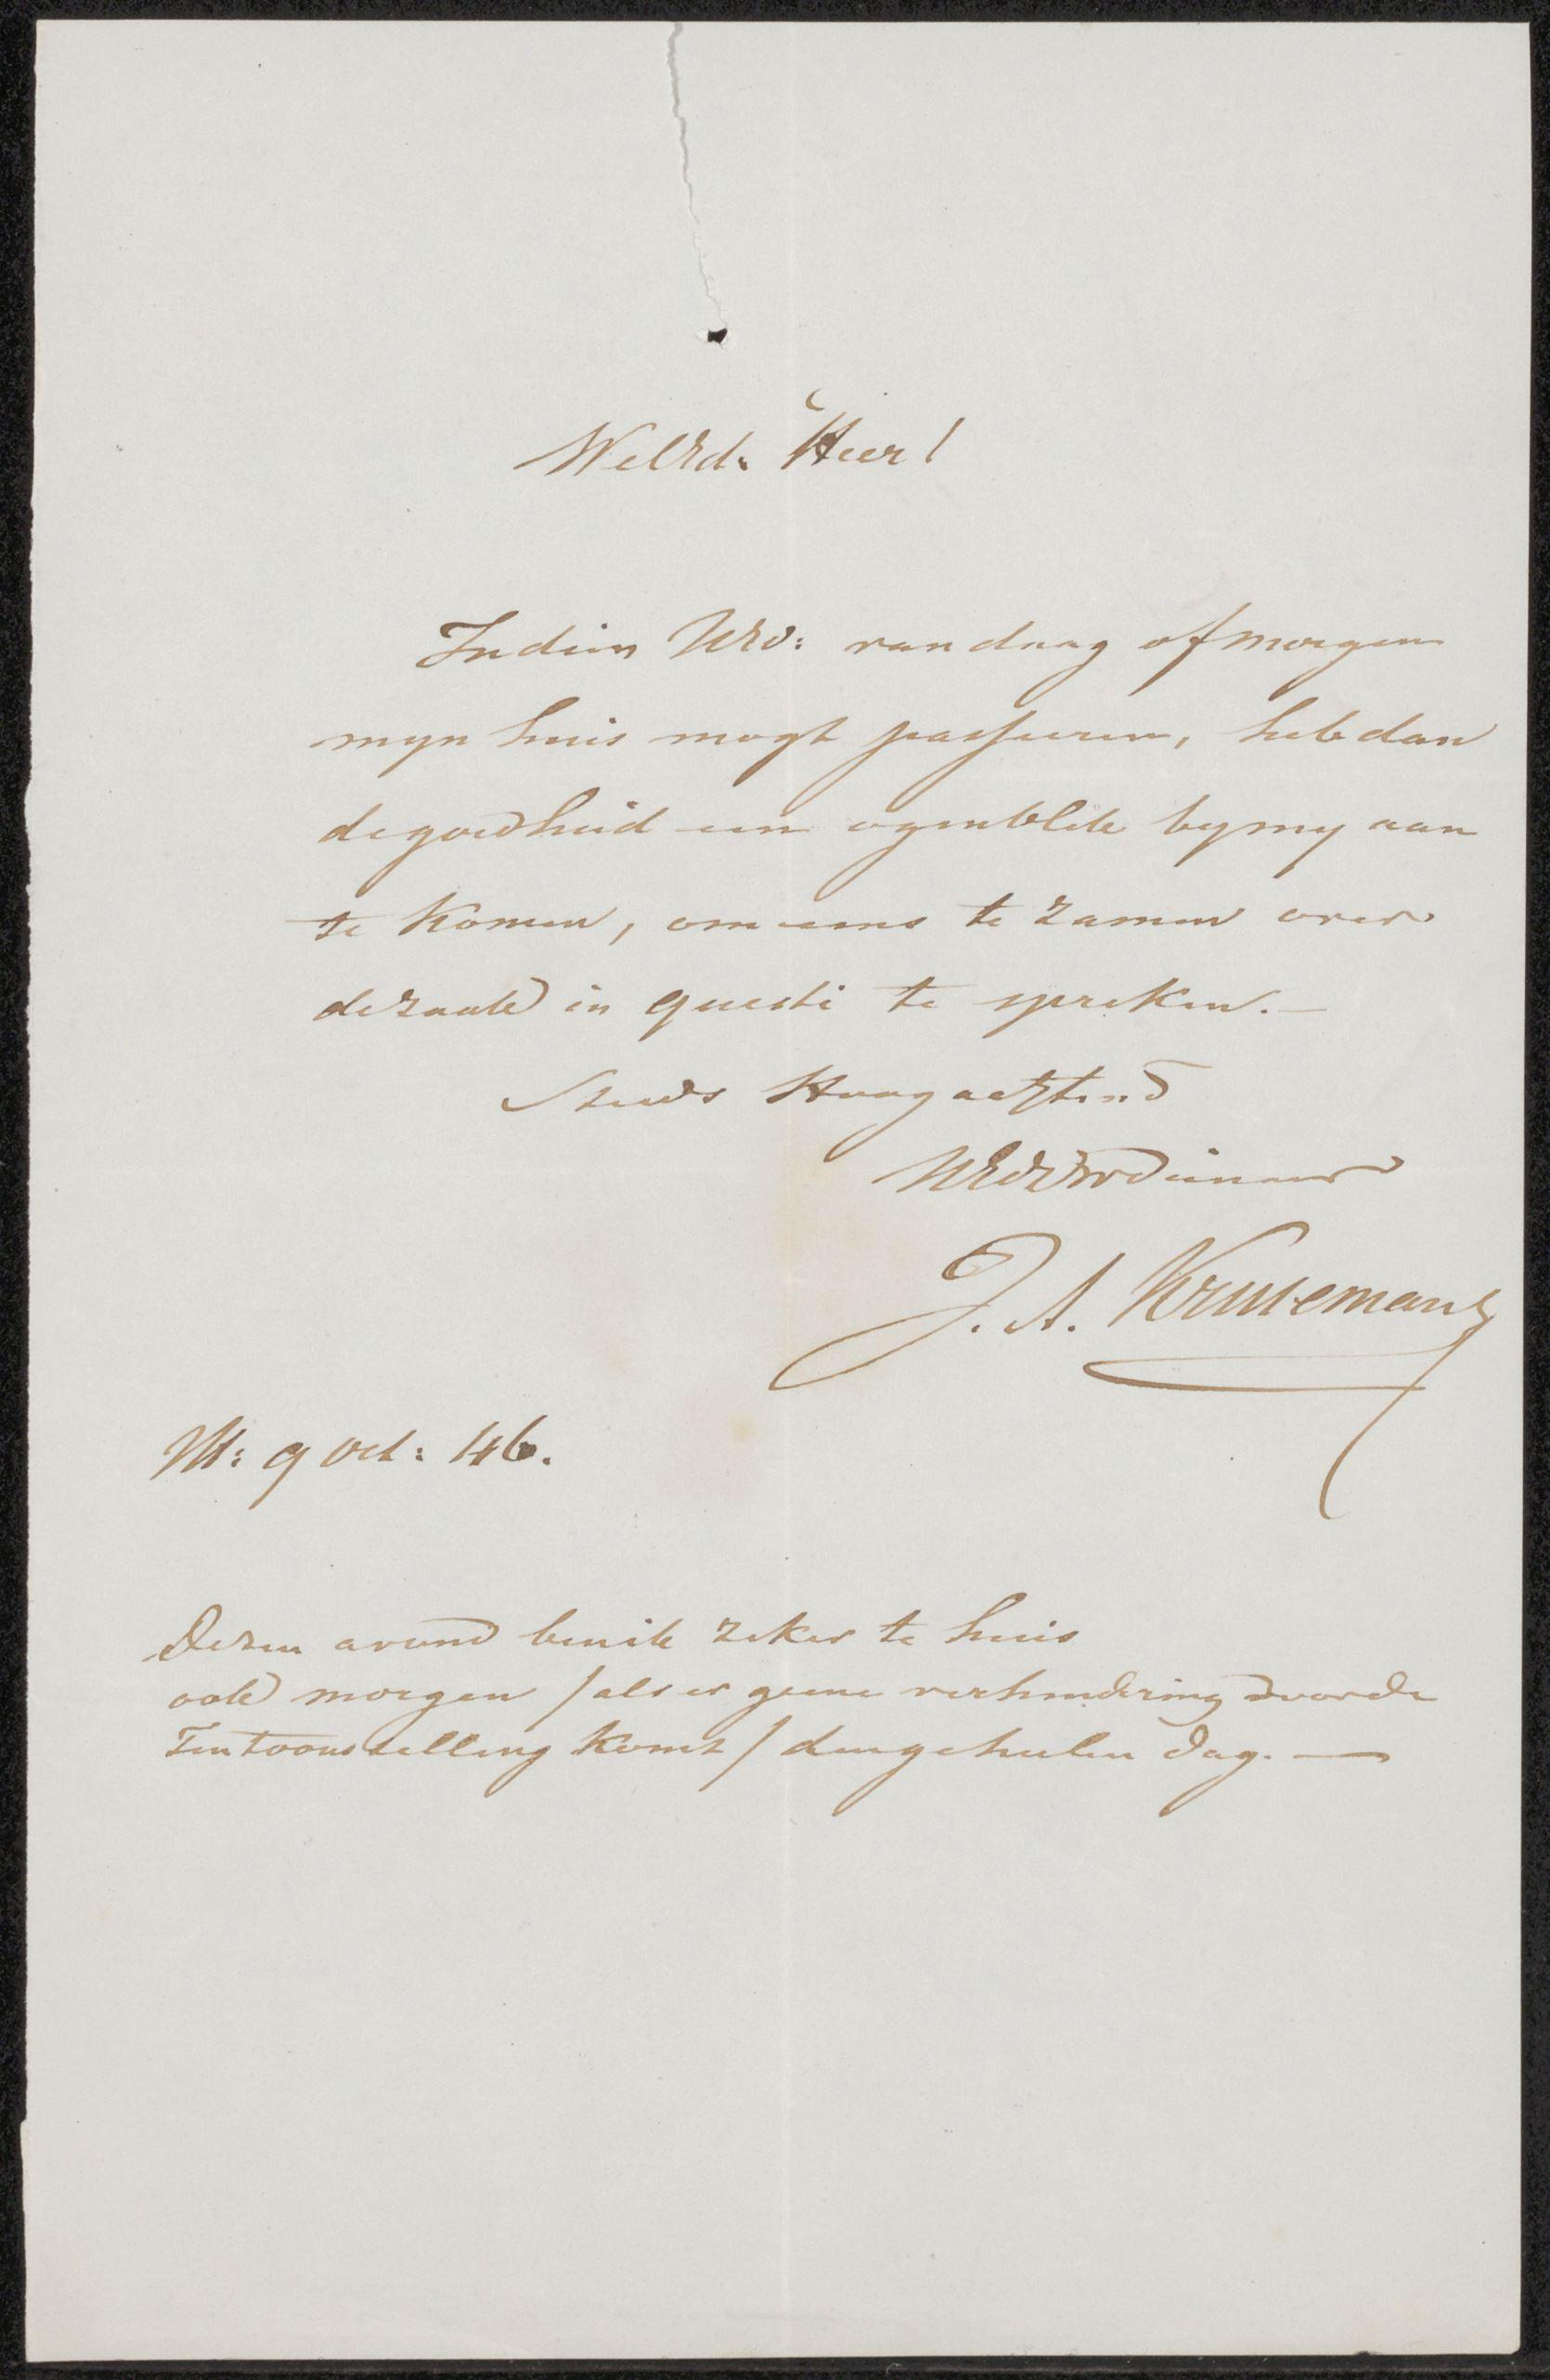 WelEd. Heer!
Indien UEd: vandaag of morgen
myn huis mogt passeeren, heb dan
de goedheid een ogenblik by my aan
te komen, om eens te zamen over
de zaak in questi te spreken. —
Steeds Hoogachtend
UEdDwDienaar
J. A. Kruseman
M: 9 Oct: 46.
Dezen avond ben ik zeker te huis
ook morgen / als er geene verhindering voor de
Tentoonstelling komt / den geheelen dag. —